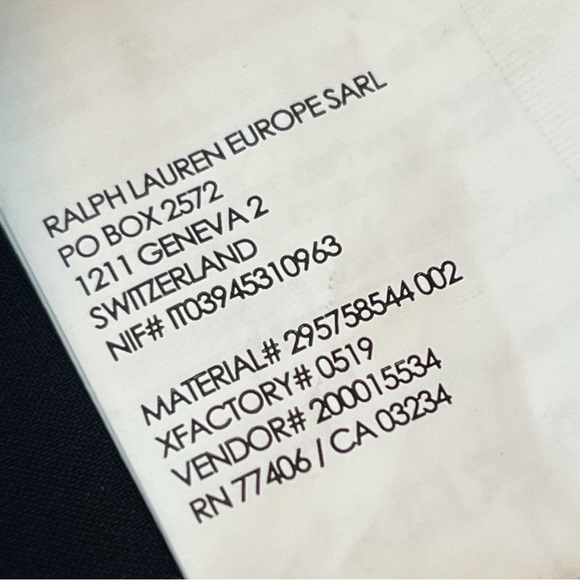 RALPH LAUREN EUROPE SARL
PO BOX 2572
1211 GENEVA 2
SWITZERLAND
NIF# IT03945310963
MATERIAL# 295758544 002
XFACTORY# 0519
VENDOR# 200015534
RN 77406 / CA 03234